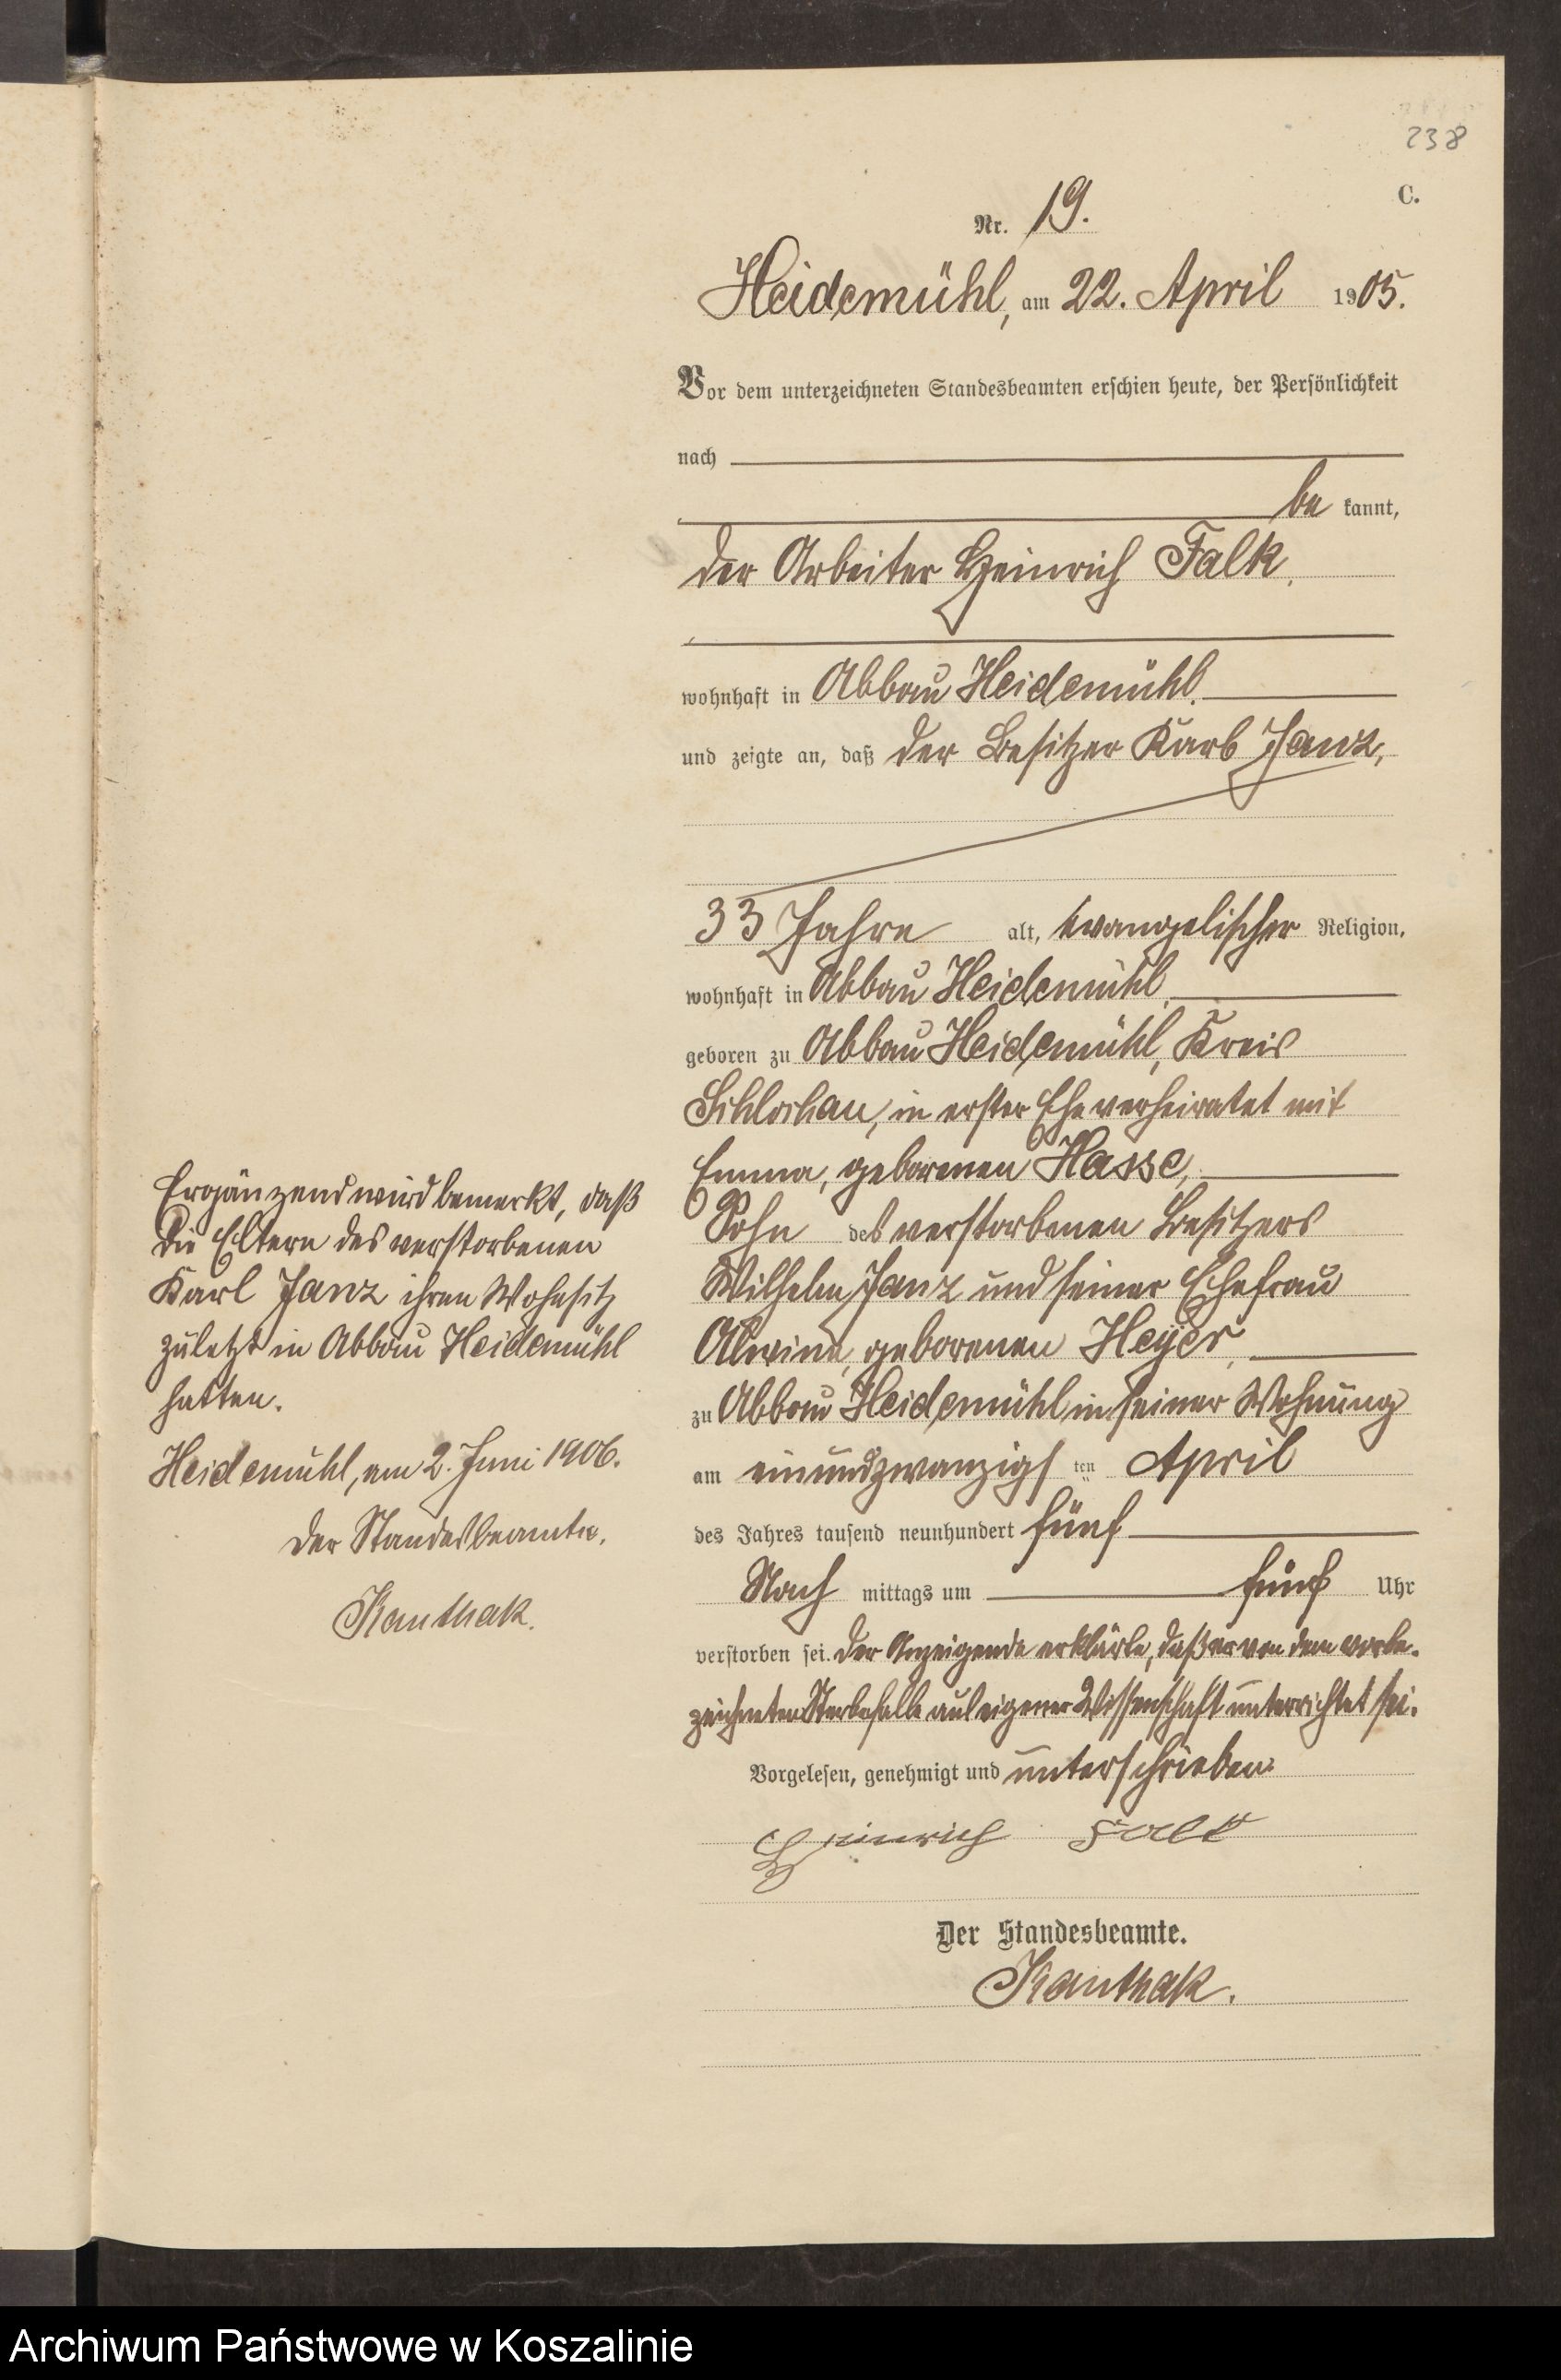 238
C.
Nr. 19.
Heidemühl, am 22. April 1905.
Vor dem unterzeichneten Standesbeamten erschien heute, der Persönlichkeit
nach
be kannt,
der Arbeiter Heinrich Falk,
wohnhaft in Abbau Heidemühl,
und zeigte an, daß der Besitzer Karl Janz,
33 Jahre alt, evangelischer Religion,
wohnhaft in Abbau Heidemühl,
geboren zu Abbau Heidemühl, Kreis
Schlochau, in erster Ehe verheiratet mit
Emma, geborenen Hasse,
Sohn des verstorbenen Besitzers
Wilhelm Janz und seiner Ehefrau
Alwine, geborenen Heyer,
zu Abbau Heidemühl, in seiner Wohnung
am einundzwanzigsten April
des Jahres tausend neunhundert fünf
Nach mittags um fünf Uhr
verstorben sei. Der Anzeigende erklärte, daß er von dem vorbe-
zeichneten Sterbefalle aus eigener Wissenschaft unterrichtet sei.
Vorgelesen, genehmigt und unterschrieben.
Heinrich Falk
Der Standesbeamte.
Kanthak.
Ergänzend wird bemerkt, daß
die Eltern des verstorbenen
Karl Janz ihren Wohnsitz
zuletzt in Abbau Heidemühl
hatten.
Heidemühl, am 2. Juni 1906.
Der Standesbeamte.
Kanthak.
Archiwum Państwowe w Koszalinie